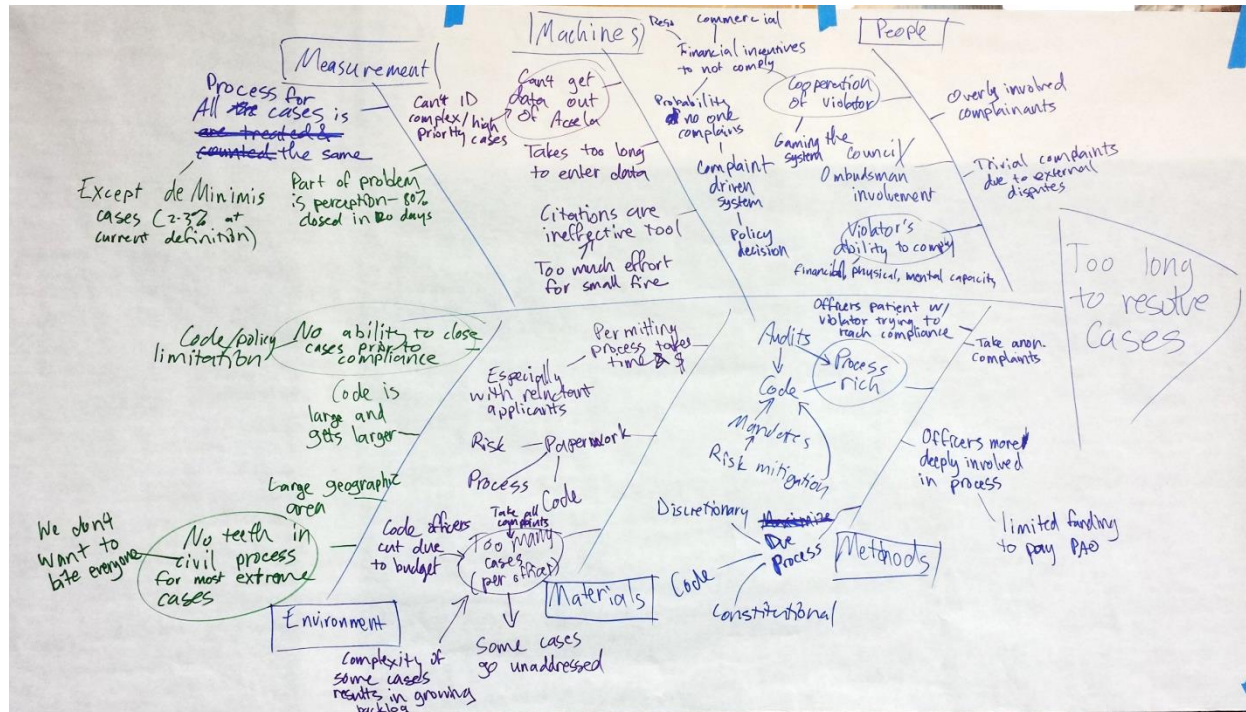 Measurement
Process for
All the cases is
are treated &
counted the same
Except de Minimis
cases (2-3% at
current definition)
Part of problem
is perception - 80%
closed in 20 days
Machines
Can't ID
complex/high
priority cases
Can't get
data out
of Accela
Takes too long
to enter data
Citations are
ineffective tool
Too much effort
for small fine
People
commercial
Financial incentives
to not comply
Probability
no one
complains
Complaint
driven
system
Policy
decision
Cooperation
of violator
Gaming the
system
Council/
Ombudsman
involvement
Violator's
ability to comply
Financial, physical, mental capacity
Overly involved
complainants
Trivial complaints
due to external
disputes
Too long
to resolve
Cases
Code/policy
limitation
No ability to close
cases prior to
compliance
Code is
large and
gets larger
Large geographic
area
We don't
want to
bite everyone
No teeth in
civil process
for most extreme
cases
Environment
Permitting
process takes
time & $
Especially
with reluctant
applicants
Risk
Paperwork
Process
Code
Take all
complaints
Code officers
cut due
to budget
Too many
cases
(per officer)
Complexity of
some cases
results in growing
backlog
Some cases
go unaddressed
Materials
Officers patient w/
violator trying to
reach compliance
Take anon.
complaints
Audits
Process
rich
Code
Mandates
Risk mitigation
Officers more
deeply involved
in process
limited funding
to pay PAO
Discretionary
Maximize
Due
Process
Code
Constitutional
Methods